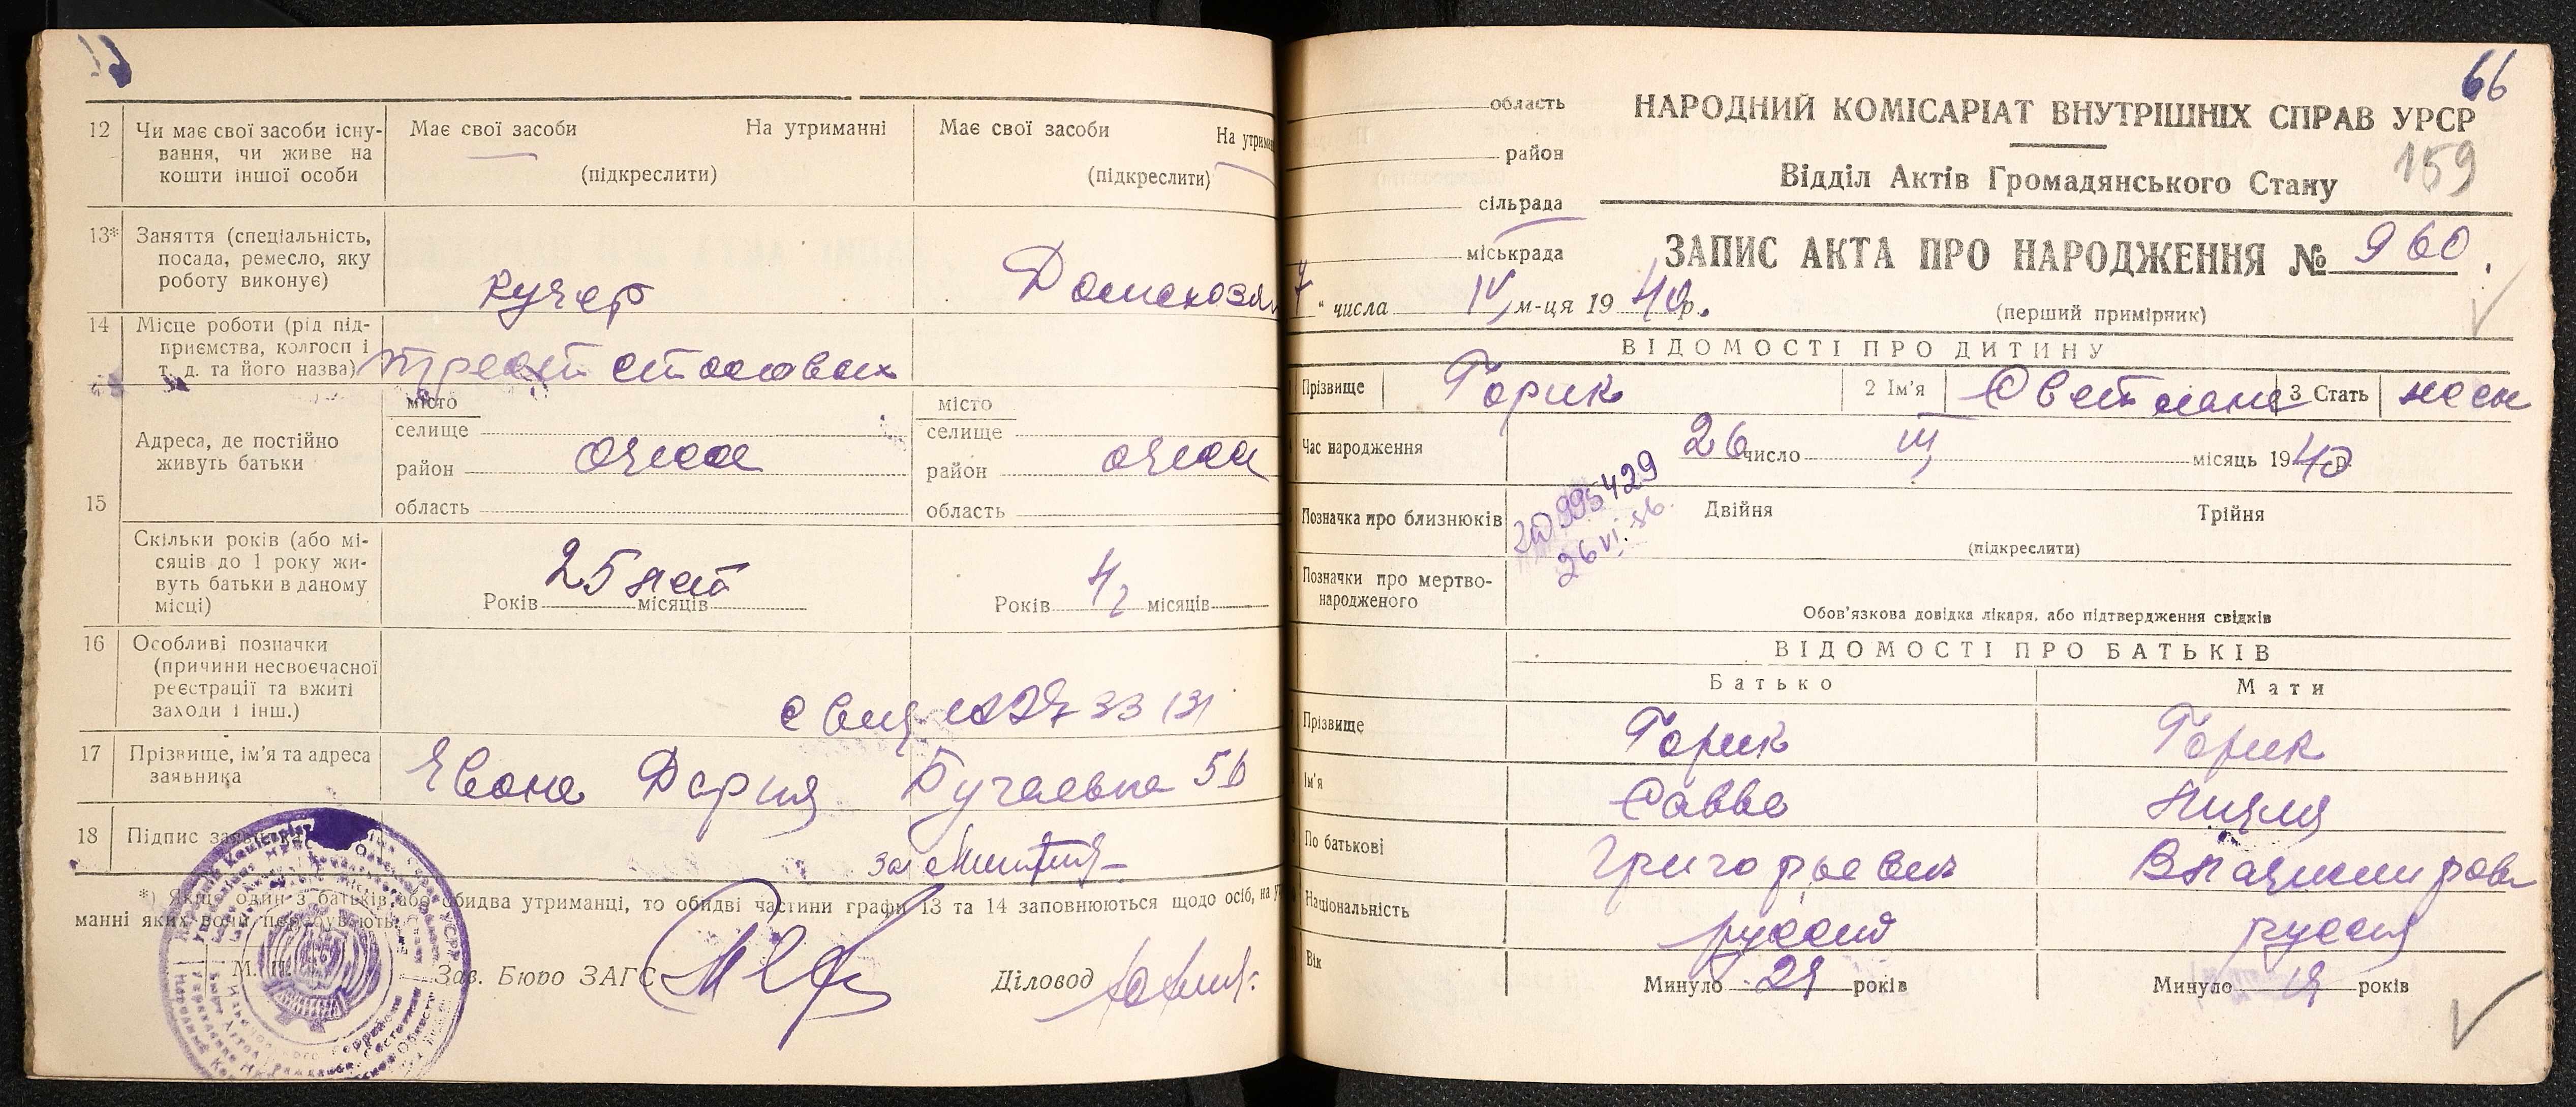 12 Чи має свої засоби існу-
вання, чи живе на
кошти іншої особи
Має свої засоби На утриманні
(підкреслити)
Має свої засоби На утрима
(підкреслити)
13* Заняття (спеціальність,
посада, ремесло, яку
роботу виконує)
кучер
Домохозяй
14 Місце роботи (рід під-
приємства, колгосп і
т. д. та його назва)
трест столовых
15 Адреса, де постійно
живуть батьки
місто
селище
район
область
місто
селище
район
область
Скільки років (або мі-
сяців до 1 року жи-
вуть батьки в даному
місці)
25 лет
Років місяців
Років 4 місяців
16 Особливі позначки
(причини несвоєчасної
реєстрації та вжиті
заходи і інш.)
17 Прізвище, ім'я та адреса
заявника
Дария
18 Підпис
*) Якщо один з батьків, або обидва утриманці, то обидві частини графи 13 та 14 заповнюються щодо осіб, на у
манні яких вони перебувають.
М. П.
Зав. Бюро ЗАГС
Діловод
66
область
район
сільрада
міськрада
НАРОДНИЙ КОМІСАРІАТ ВНУТРІШНІХ СПРАВ УРСР
159
Відділ Актів Громадянського Стану
ЗАПИС АКТА ПРО НАРОДЖЕННЯ № 960
7 " числа IV м-ця 1940 р.
(перший примірник)
ВІДОМОСТІ ПРО ДИТИНУ
Прізвище Горик 2 Ім'я Светлана 3 Стать жен
Час народження 26 число III місяць 1940 р.
995429
26 VI 56
Позначка про близнюків Двійня Трійня
(підкреслити)
Позначки про мертво-
народженого
Обов'язкова довідка лікаря, або підтвердження свідків
ВІДОМОСТІ ПРО БАТЬКІВ
Батько Мати
Прізвище Горик Горик
Ім'я Савва Лидия
По батькові Григорьевич Владимиров
Національність русский русская
Вік Минуло років Минуло років